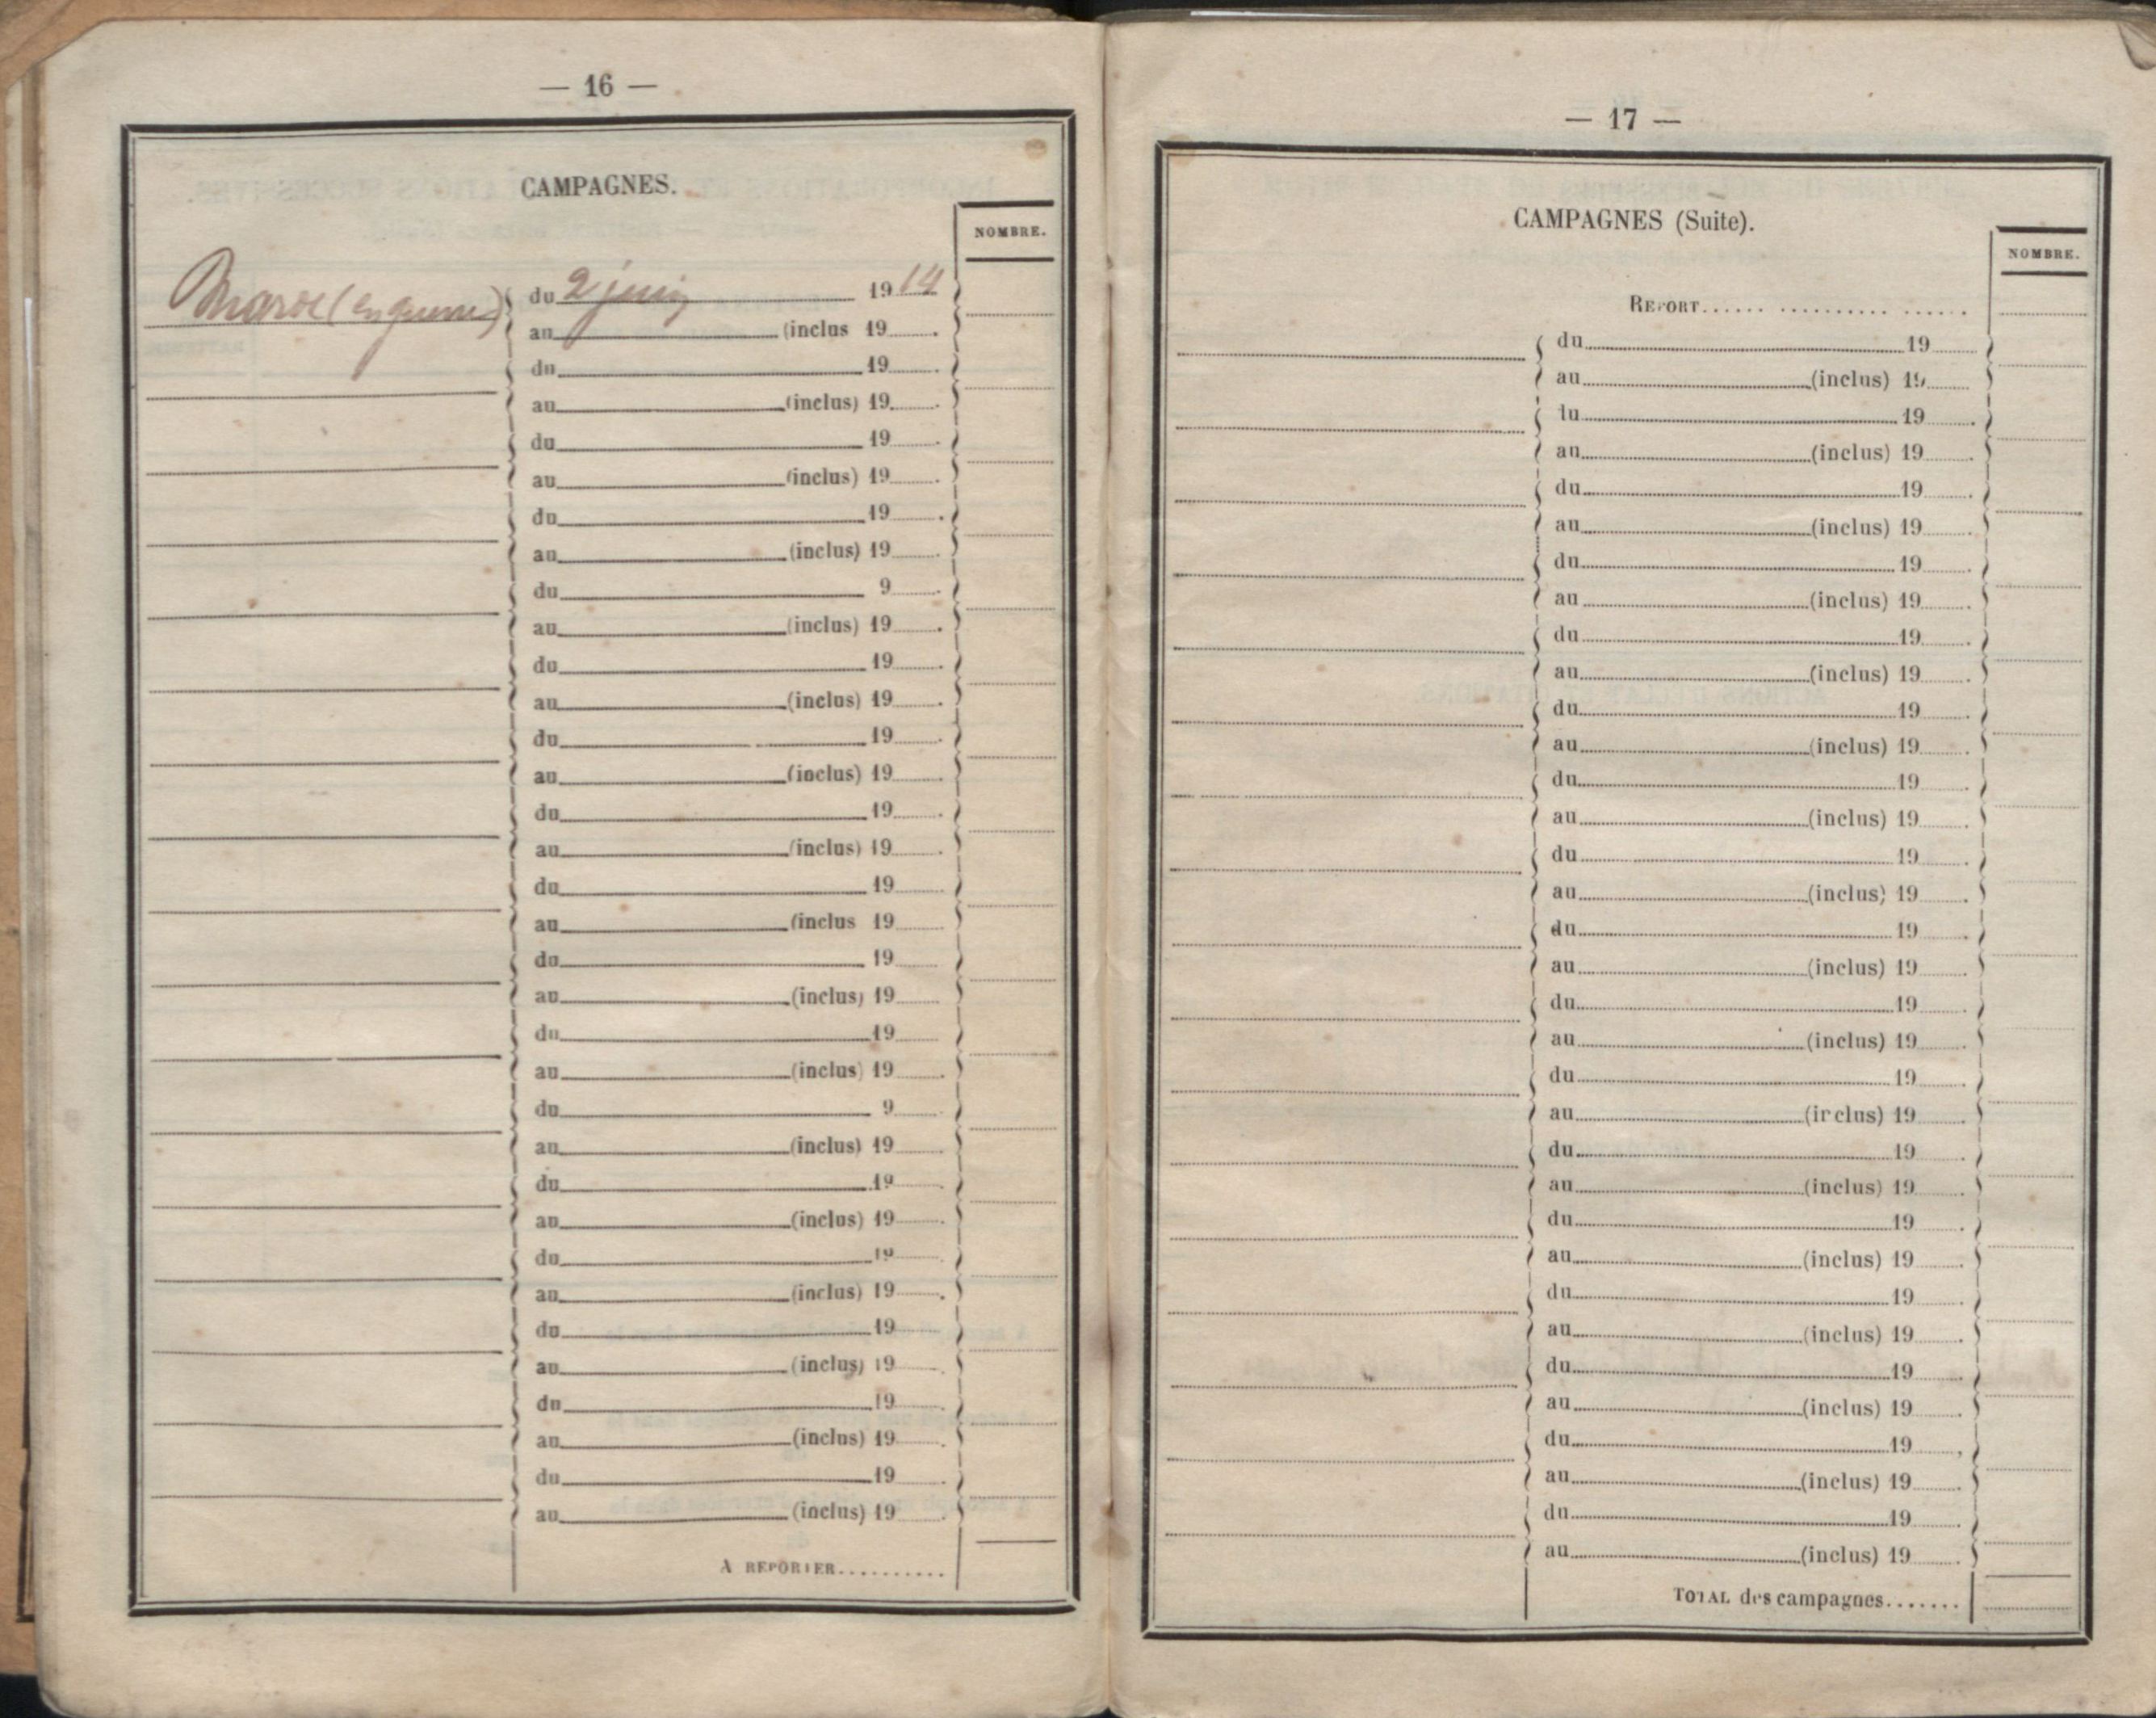 — 16 —
CAMPAGNES.
NOMBRE.
Maroc (en guerre) du 2 juin 1914
au (inclus 19
du 19
au (inclus) 19
du 19
au (inclus) 19
du 19
au (inclus) 19
du 9
au (inclus) 19
du 19
au (inclus) 19
du 19
au (inclus) 19
du 19
au (inclus) 19
du 19
au (inclus 19
du 19
au (inclus) 19
du 19
au (inclus) 19
du 9
au (inclus) 19
du 19
au (inclus) 19
du 19
au (inclus) 19
du 19
au (inclus) 19
du 19
au (inclus) 19
du 19
au (inclus) 19
A REPORTER..........
— 17 —
CAMPAGNES (Suite).
NOMBRE.
REPORT...... .......... ......
du 19
au (inclus) 19
du 19
au (inclus) 19
du 19
au (inclus) 19
du 19
au (inclus) 19
du 19
au (inclus) 19
du 19
au (inclus) 19
du 19
au (inclus) 19
du 19
au (inclus) 19
du 19
au (inclus) 19
du 19
au (inclus) 19
du 19
au (inclus) 19
du 19
au (inclus) 19
du 19
au (inclus) 19
du 19
au (inclus) 19
du 19
au (inclus) 19
du 19
au (inclus) 19
du 19
au (inclus) 19
TOTAL des campagnes.......